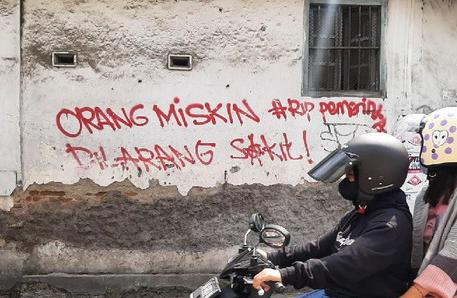 ORANG MiSKIN #RIP pemerintah
DiLARANG SAKit!